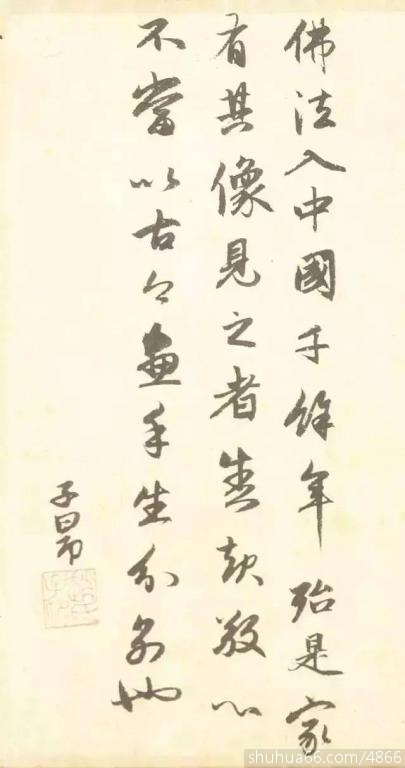 佛法入中國千餘年殆是家
有其像見之者盡起敬心
不當以古今畫手生分別也
子昂
趙氏子昂
shuhua66.com/4866